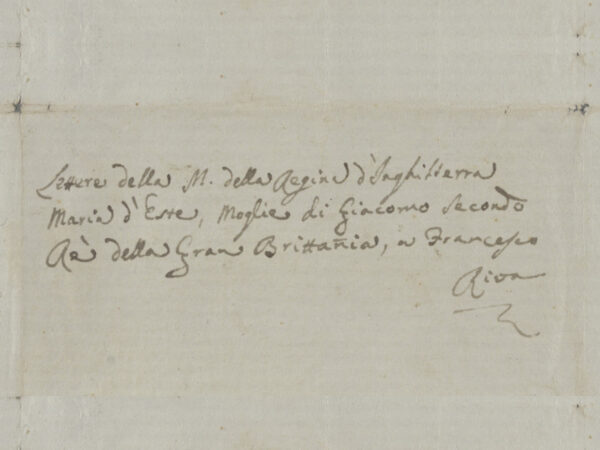 Lettere della M. della Regina d'Inghilterra
Maria d'Este, Moglie di Giacomo Secondo
Rè della Gran Brittañia, a Francesco
Riva